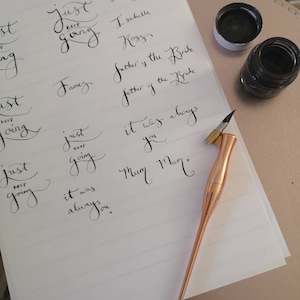 Just
KEEP
going.
Isabelle
Ross.
Just
KEEP
going
Father of the Bride
Fancy.
father of the Bride
just
KEEP
going
it was always
you
Just
KEEP
going
Mum Mum.
it was
always
you.